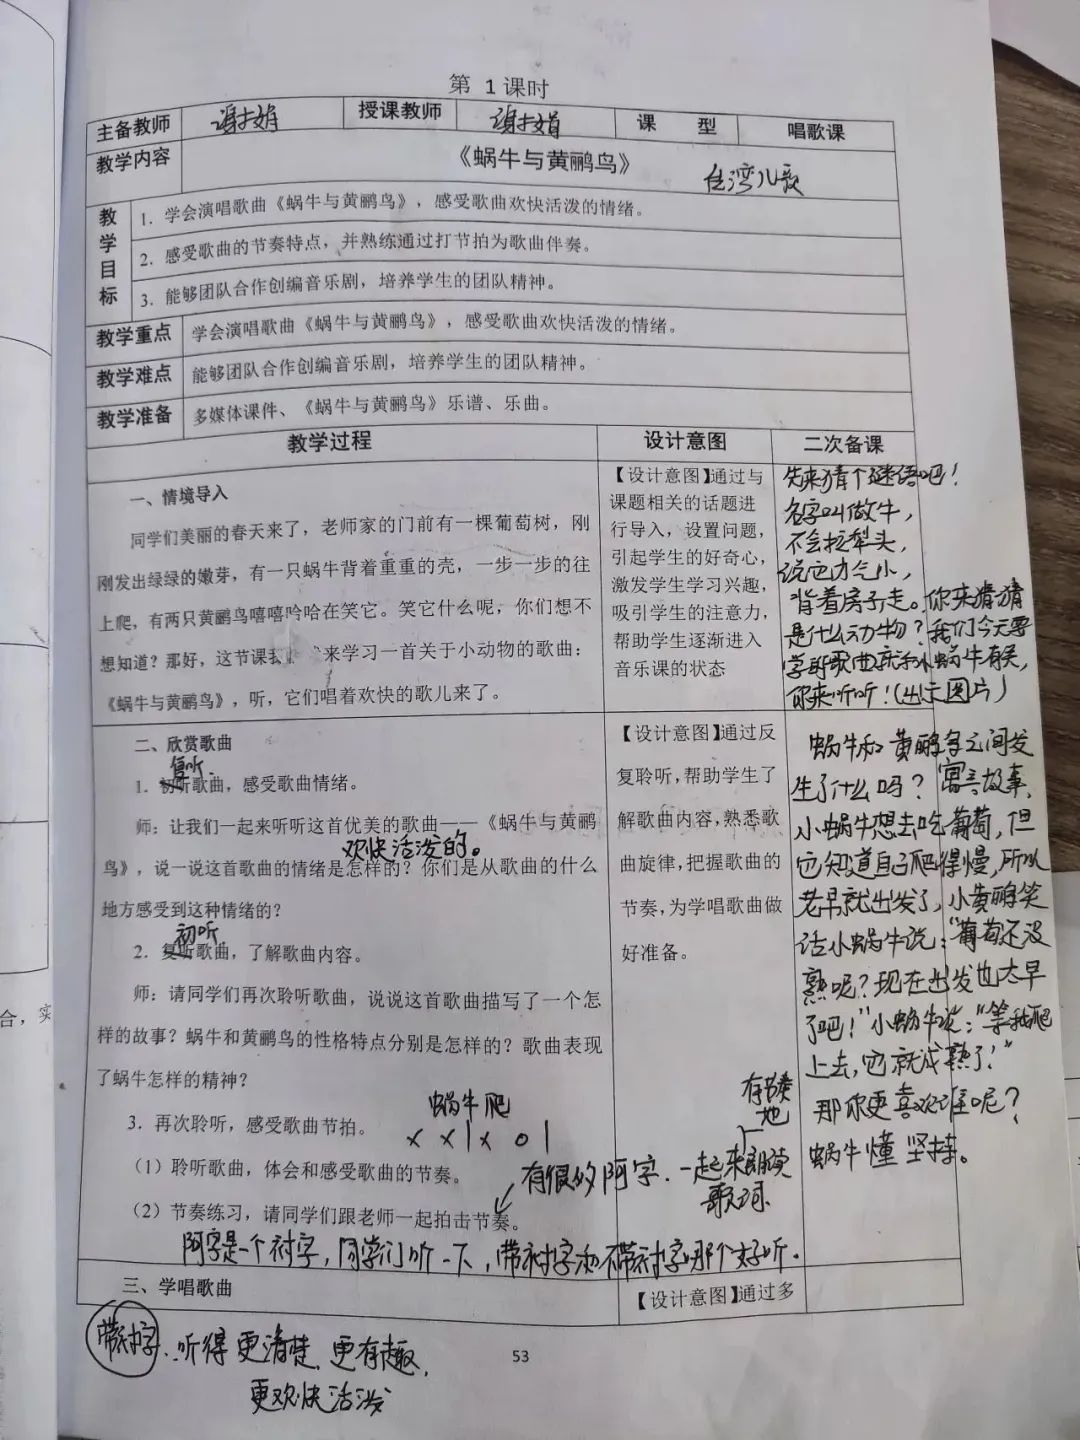 第 1 课时
主备教师 谢文娟 授课教师 谢文娟 课 型 唱歌课
教学内容 《蜗牛与黄鹂鸟》 台湾儿歌
教学目标
1. 学会演唱歌曲《蜗牛与黄鹂鸟》，感受歌曲欢快活泼的情绪。
2. 感受歌曲的节奏特点，并熟练通过打节拍为歌曲伴奏。
3. 能够团队合作创编音乐剧，培养学生的团队精神。
教学重点 学会演唱歌曲《蜗牛与黄鹂鸟》，感受歌曲欢快活泼的情绪。
教学难点 能够团队合作创编音乐剧，培养学生的团队精神。
教学准备 多媒体课件、《蜗牛与黄鹂鸟》乐谱、乐曲。
教学过程 设计意图 二次备课
一、情境导入
同学们美丽的春天来了，老师家的门前有一棵葡萄树，刚
刚发出绿绿的嫩芽，有一只蜗牛背着重重的壳，一步一步的往
上爬，有两只黄鹂鸟嘻嘻哈哈在笑它。笑它什么呢，你们想不
想知道？那好，这节课我 来学习一首关于小动物的歌曲：
《蜗牛与黄鹂鸟》，听，它们唱着欢快的歌儿来了。
【设计意图】通过与
课题相关的话题进
行导入，设置问题，
引起学生的好奇心，
激发学生学习兴趣，
吸引学生的注意力，
帮助学生逐渐进入
音乐课的状态
先来猜个谜语吧！
名字叫做牛，
不会拉犁头，
说它力气小，
背着房子走。你来猜猜
是什么动物？我们今天要
学的歌曲就和小蜗牛有关，
你来听听！（出示图片）
二、欣赏歌曲
复听
1. 初听歌曲，感受歌曲情绪。
师：让我们一起来听听这首优美的歌曲——《蜗牛与黄鹂
欢快活泼的。
鸟》，说一说这首歌曲的情绪是怎样的？你们是从歌曲的什么
地方感受到这种情绪的？
初听
2. 复听歌曲，了解歌曲内容。
师：请同学们再次聆听歌曲，说说这首歌曲描写了一个怎
样的故事？蜗牛和黄鹂鸟的性格特点分别是怎样的？歌曲表现
了蜗牛怎样的精神？
蜗牛爬
3. 再次聆听，感受歌曲节拍。 X X|X 0|
（1）聆听歌曲，体会和感受歌曲的节奏。
（2）节奏练习，请同学们跟老师一起拍击节奏。
有很多阿字.一起来朗读
歌词.
有节奏
地
阿字是一个衬字，同学们听一下，带衬字和不带衬字哪个好听.
【设计意图】通过反
复聆听，帮助学生了
解歌曲内容，熟悉歌
曲旋律，把握歌曲的
节奏，为学唱歌曲做
好准备。
蜗牛和黄鹂鸟之间发
生了什么吗？寓言故事.
小蜗牛想去吃葡萄，但
它知道自己爬得慢，所以
老早就出发了，小黄鹂笑
话小蜗牛说："葡萄还没
熟呢？现在出发也太早
了吧！"小蜗牛说："等我爬
上去，它就成熟了！"
那你更喜欢谁呢？
蜗牛懂坚持。
三、学唱歌曲 【设计意图】通过多
带衬字.听得更清楚、更有趣、
更欢快活泼
53